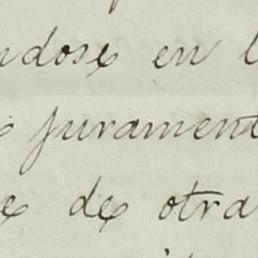 ndose en l
jurament
de otra